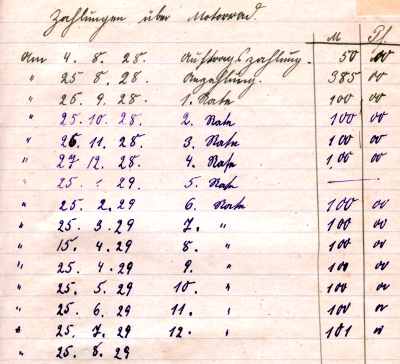 Zahlungen über Motorrad.
M Pf
Am 4. 8. 28. Auftragszahlung. 50 00
" 25 8. 28. Anzahlung. 385 00
" 25. 9. 28. 1. Rate 100 00
" 25. 10. 28. 2. Rate 100 00
" 26. 11. 28. 3. Rate 100 00
" 27. 12. 28. 4. Rate 100 00
" 25. 1. 29. 5. Rate —
" 25. 2. 29 6. Rate 100 00
" 25. 3. 29 7. " 100 00
" 15. 4. 29 8. " 100 00
" 25. 4. 29 9. " 100 00
" 25. 5. 29 10. " 100 00
" 25. 6. 29 11. " 100 00
" 25. 7. 29 12. " 101 00
" 25. 8. 29